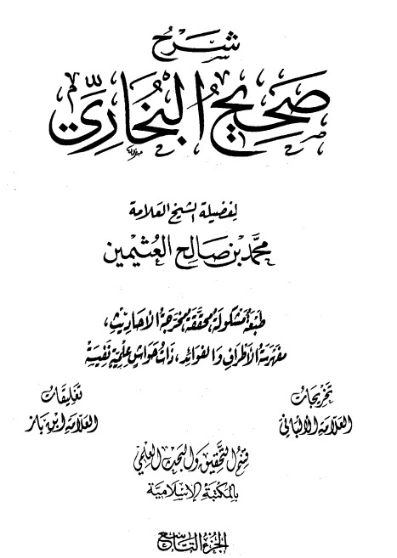 شرح
صحيح البخاري
لفضيلة الشيخ العلامة
محمد بن صالح العثيمين
طبعة مشكولة محققة مخرجة الأحاديث،
مفهرسة الأطراف والفوائد، ذات حواش علمية نفيسة
تخريجات
العلامة الألباني
تعليقات
العلامة ابن باز
قسم التحقيق والبحث العلمي
بالمكتبة الإسلامية
الجزء التاسع